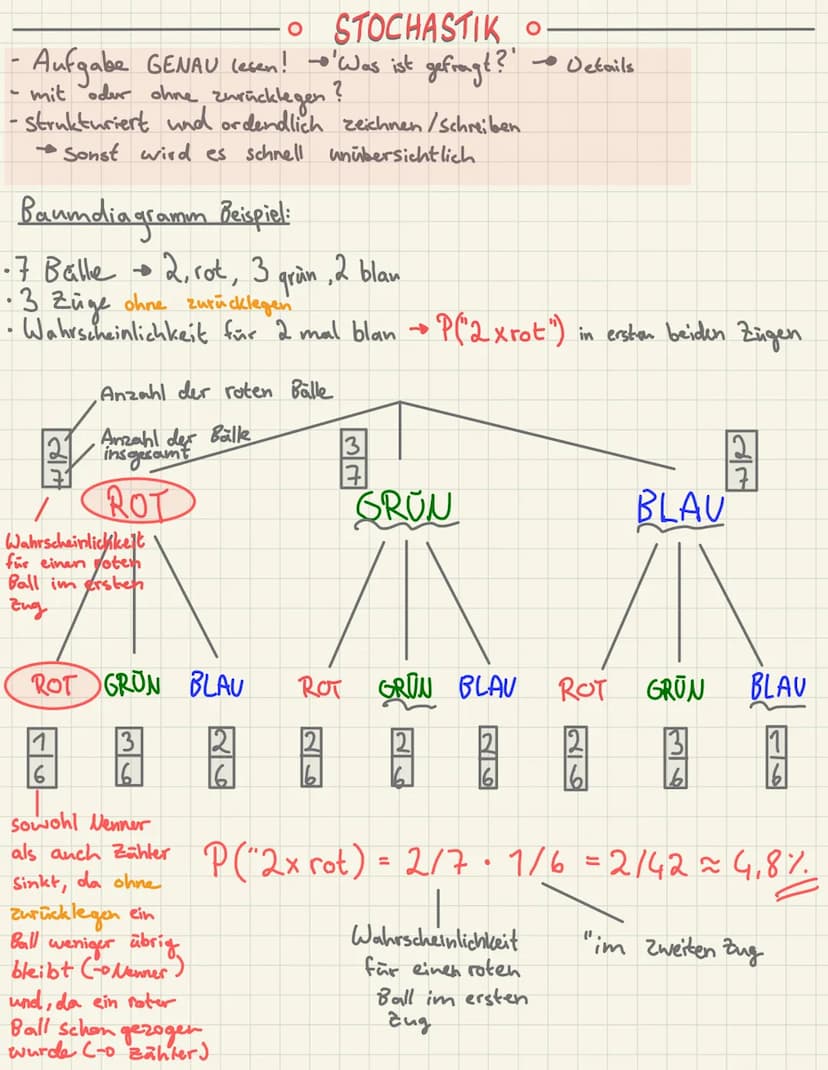 STOCHASTIK
- Aufgabe GENAU lesen! → 'Was ist gefragt?' → Details
- mit oder ohne zurücklegen?
- Strukturiert und ordendlich zeichnen/Schreiben
→ Sonst wird es schnell unübersichtlich
Baumdiagramm Beispiel:
• 7 Bälle → 2, rot, 3 grün, 2 blau
• 3 Züge ohne zurücklegen
• Wahrscheinlichkeit für 2 mal blau → P("2xrot") in ersten beiden Zügen
Anzahl der roten Bälle
Anzahl der Bälle
insgesamt
2/7
3/7
2/7
ROT
GRÜN
BLAU
Wahrscheinlichkeit
für einen roten
Ball im ersten
Zug
ROT GRÜN BLAU ROT GRÜN BLAU ROT GRÜN BLAU
1/6 3/6 2/6 2/6 2/6 2/6 2/6 3/6 1/6
sowohl Nenner
als auch Zähler
sinkt, da ohne
zurücklegen ein
Ball weniger übrig
bleibt (→ Nenner)
und, da ein roter
Ball schon gezogen
wurde (→ Zähler)
P("2x rot) = 2/7 · 1/6 = 2/42 ≈ 4,8%
Wahrscheinlichkeit
für einen roten
Ball im ersten
Zug
"im zweiten Zug